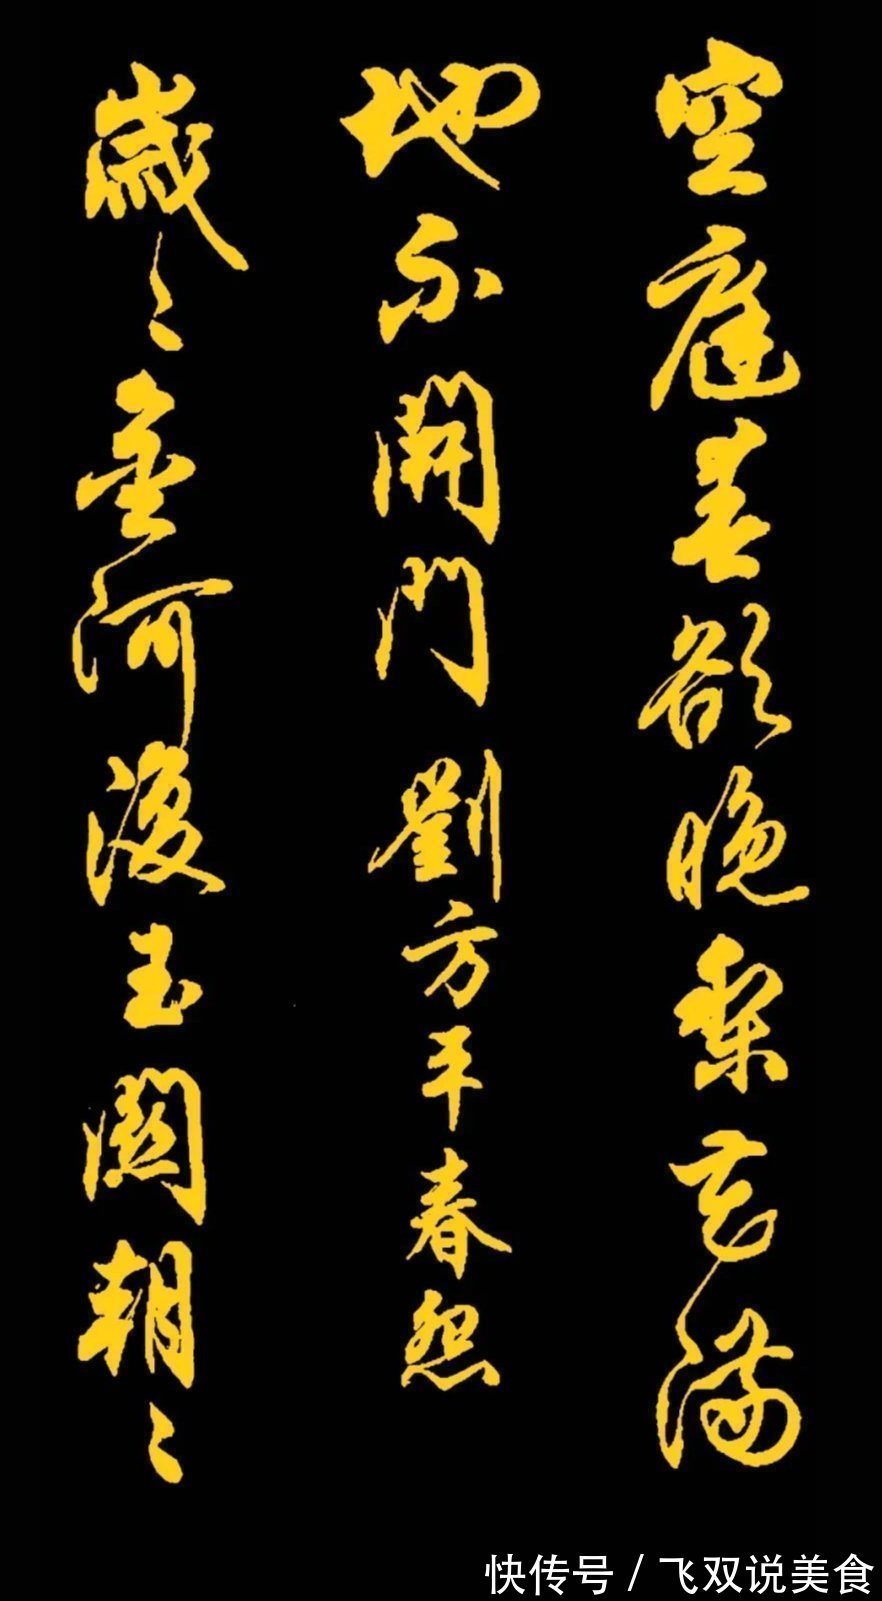 空庭春欲晚梨花滿
地不開門 劉方平春怨
歲々金河復玉關朝々
快传号/飞双说美食